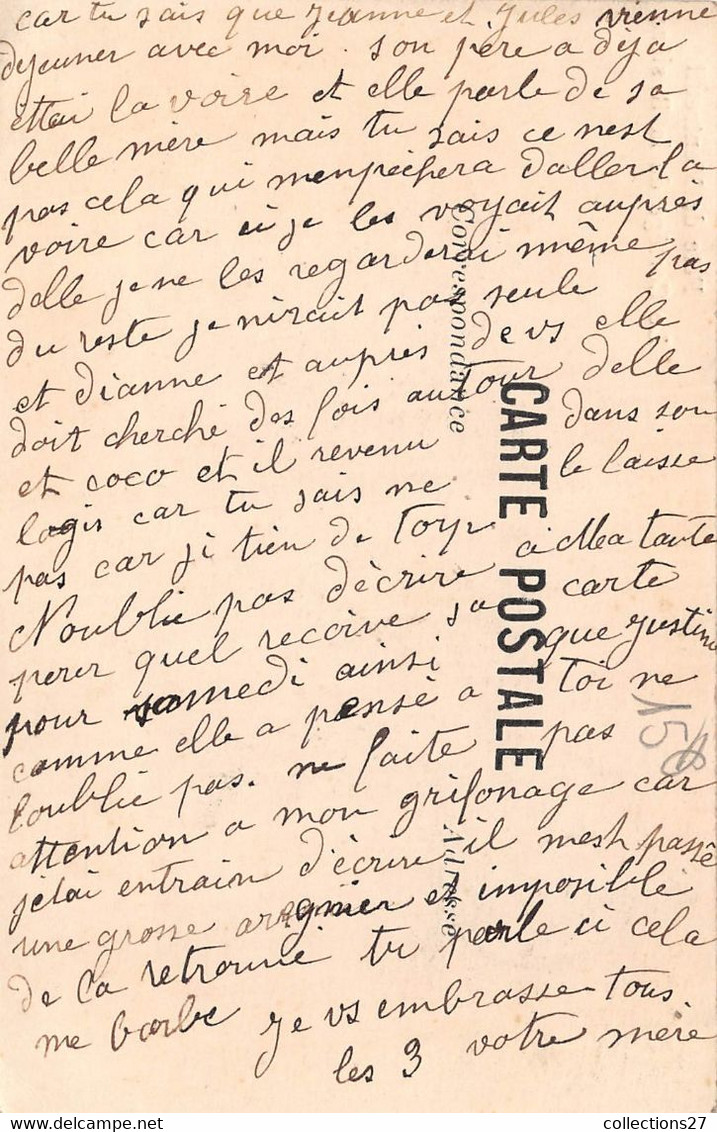 car tu sais que Jeanne et Jules vienne
dejeuner avec moi. son père a dija
ettai la voire et elle parle de sa
belle mère mais tu sais ce nest
pas cela qui menpechera daller la
voire car si je les voyait auprès
delle je ne les regarderai même pas
du reste je nirait pas seule
et dianne et auprès de vs elle
doit cherché des fois autour delle
et coco et il revenu dans son
logis car tu sais ne le laisse
pas car ji tien de
Noublie pas décrire a Ma tante
pour quel recoive sa carte
pour samedi ainsi que Justine
comme elle a pensé a toi ne
loublie pas. ne faite pas
attention a mon grifonage car
jetai entrain décrire il mest passé
une grosse aregnier et imposible
de la retrouvé tu parle si cela
me barbe Je vs embrasse tous
les 3 votre mère
Correspondance
CARTE POSTALE
Adresse
158
collections27